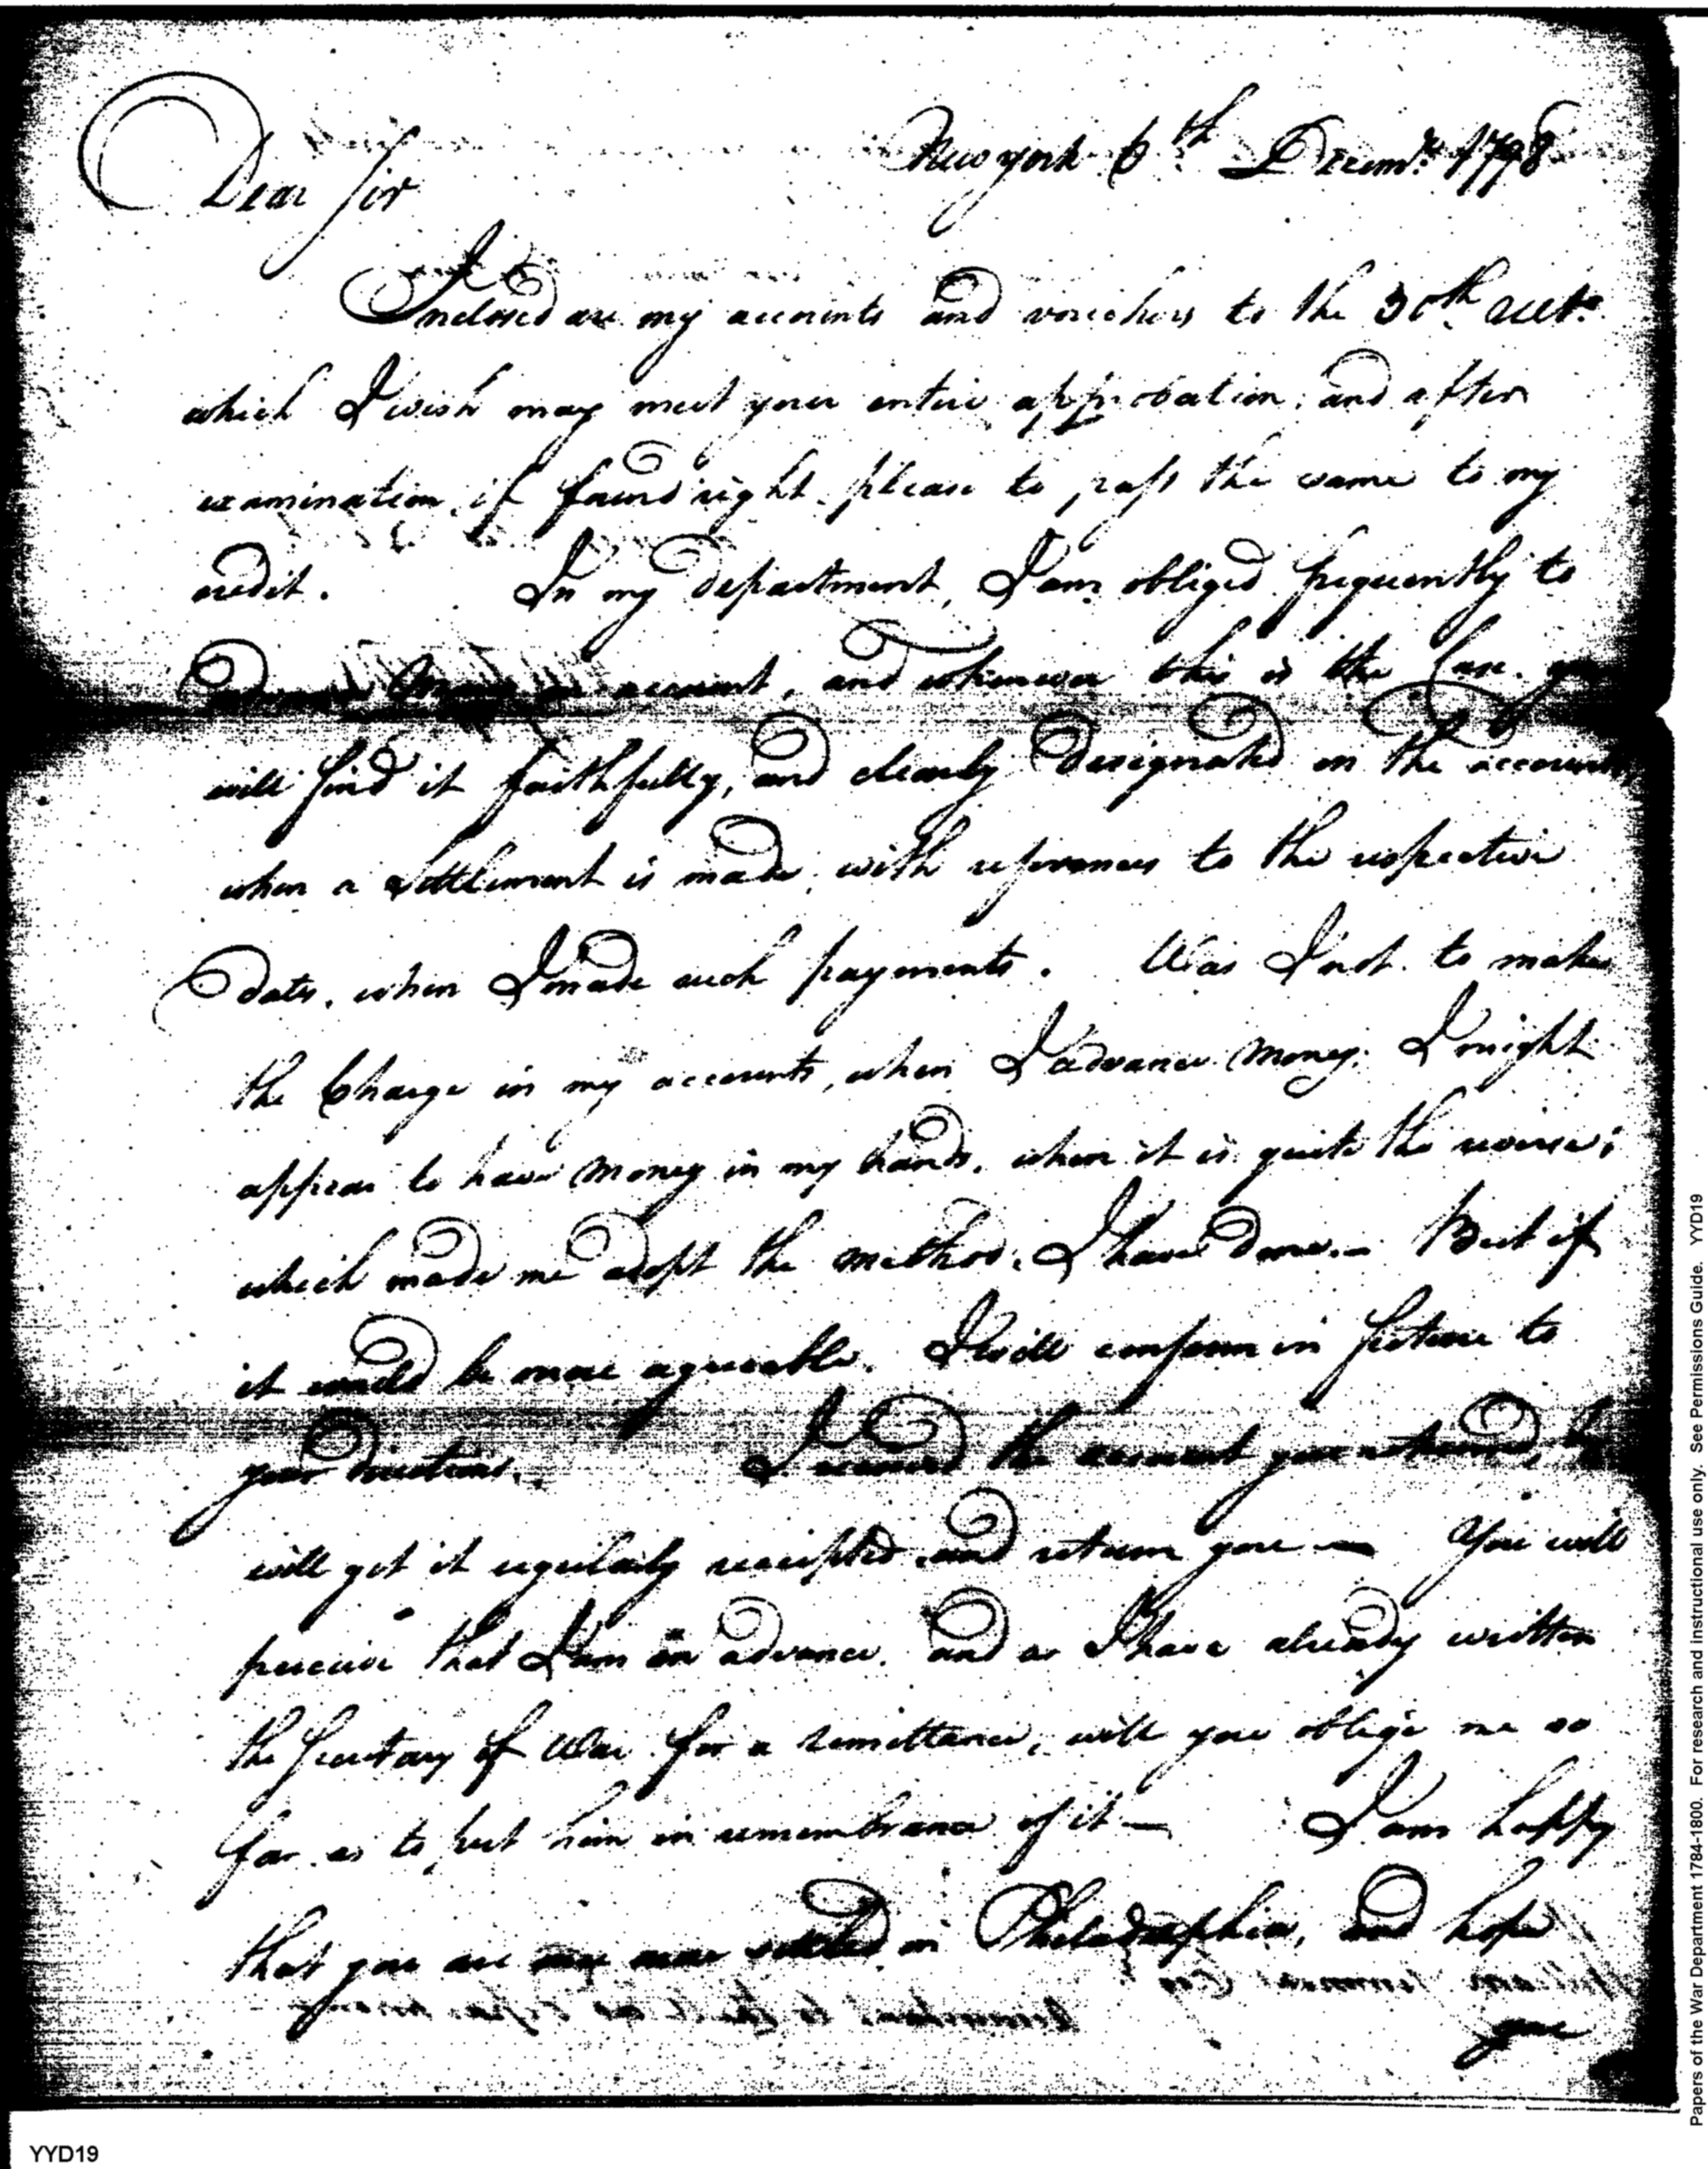 New york 6th Decemr. 1798
Dear Sir
Inclosed are my accounts and vouchers to the 30th Ulto.
which I wish may meet your entire approbation, and after
examination, if found right please to pass the same to my
credit. In my department, I am obliged frequently to
advance Money on account, and whenever this is the Case. you
will find it faithfully, and clearly designated on the accounts
when a settlement is made, with references to the respective
dates, when I made such payments. Was I not to make
the Charge in my accounts, when I advance Money. I might
appear to have Money in my hands, when it is quite the reverse;
which made me adopt the method, I have done.— But if
it would be more agreeable. I will conform in future to
your directions. I received the account you returned, &
will get it regularly receipted, and return you — You will
perceive that I am in advance, and as I have already written
the Secretary of War for a remittance, will you oblige me so
far as to put him in remembrance of it — I am happy
that you are now settled in Philadelphia, and hope
you
Papers of the War Department 1784-1800. For research and instructional use only. See Permissions Guide. YYD19
YYD19